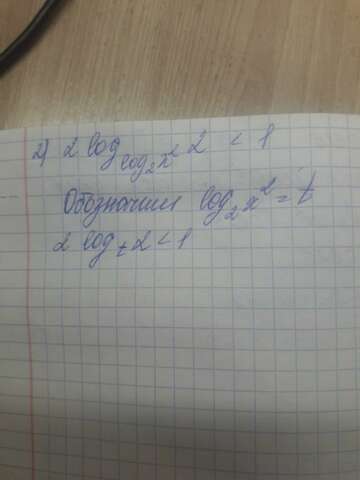 2) 2 log_{log_2 x^2} 2 < 1
Обозначим log_2 x^2 = t
2 log_t 2 < 1